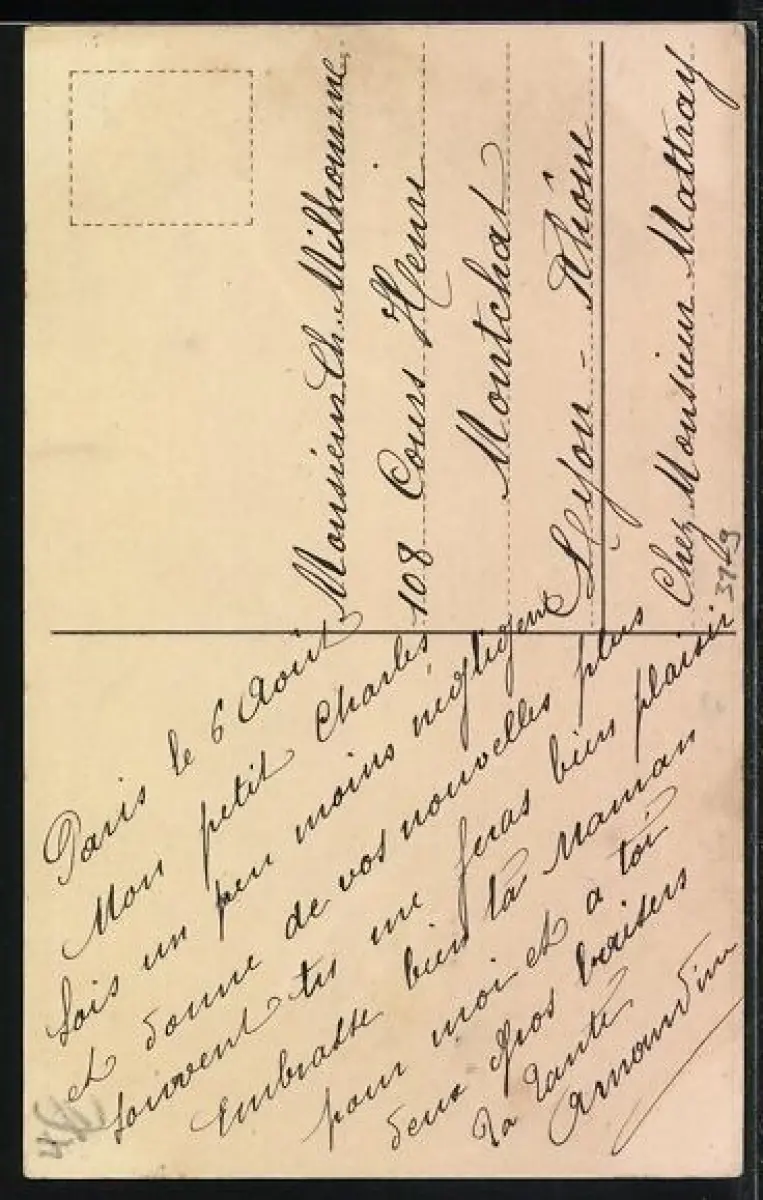 Paris le 6 Août
Mon petit Charles
Sois un peu moins négligent
et donne de vos nouvelles plus
souvent tu me feras bien plaisir
Embrasse bien ta Maman
pour moi et a toi
deux gros baisers
Ta Tante
Amandine
Monsieur Ch. Milhomme
108 Cours Henri
Montchat
Lyon - Rhône
Chez Monsieur Mattray